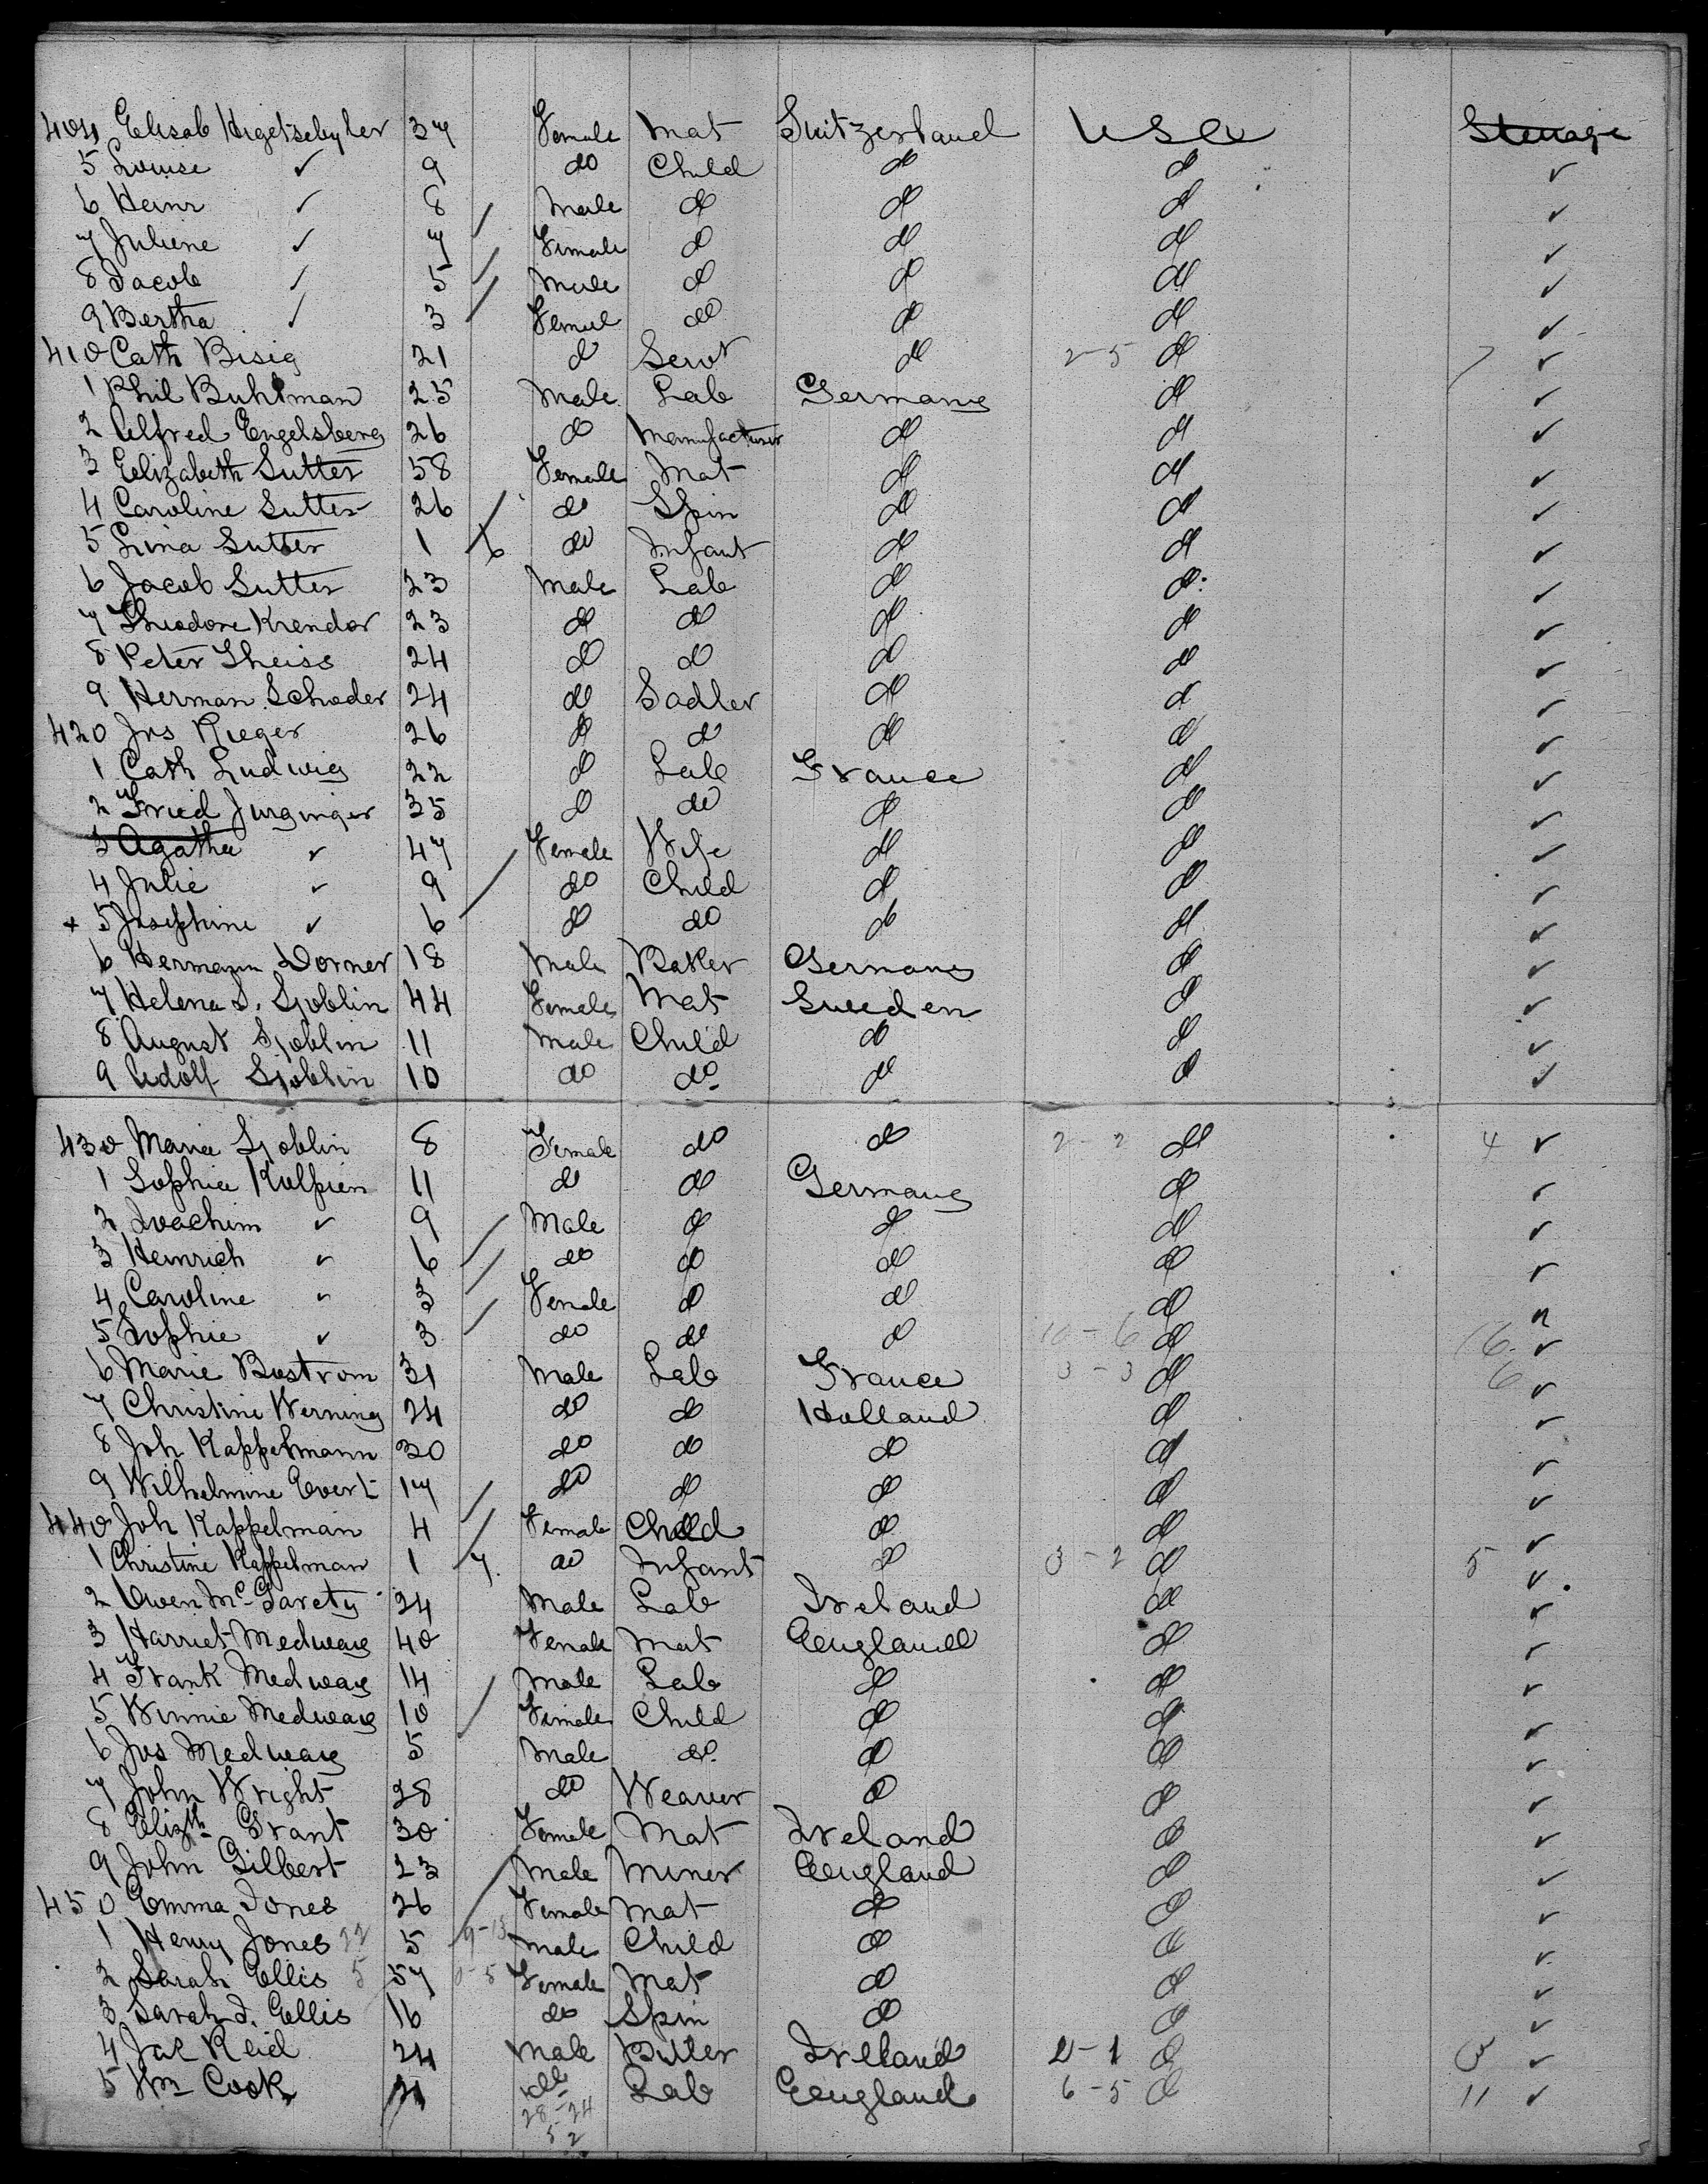 404 Elisab Higetschyler 37 Female Mat Suitzerland USA Steerage
5 Louise ✓ 9 do Child do do ✓
6 Heinr ✓ 8 / Male do do do ✓
7 Juliene ✓ 7 / Female do do do ✓
8 Jacob ✓ 5 / Male do do do ✓
9 Bertha ✓ 3 / Femal do do do ✓
410 Cath Bisig 21 do Servt do 2-5 do 7 ✓
1 Phil Buhlman 25 Male Lab Germany do ✓
2 Alfred Engelsberg 26 do Manufacturer do do ✓
3 Elizabeth Sutter 58 Female Mat do do ✓
4 Caroline Sutter 26 / do Spin do do ✓
5 Lina Sutter 1 6 do Infant do do ✓
6 Jacob Sutter 23 Male Lab do do ✓
7 Theodore Krendor 23 do do do do ✓
8 Peter Theiss 24 do do do do ✓
9 Herman Schroder 24 do Sadler do do ✓
420 Jos Rieger 26 do do do do ✓
1 Cath Ludwig 22 do Lab France do ✓
2 Fried Jurginger 35 do do do do ✓
3 Agatha ✓ 47 Female Wife do do ✓
4 Julie ✓ 9 / do Child do do ✓
+ 5 Josephine ✓ 6 / do do do do ✓
6 Hermann Dorner 18 Male Baker Germany do ✓
7 Helena S. Sjoblin 44 Female Mat Sweden do ✓
8 August Sjoblin 11 Male Child do do ✓
9 Adolf Sjoblin 10 do do do do ✓
430 Maria Sjoblin 8 Female do do 2-2 do 4 ✓
1 Sophia Kulpien 11 do do Germany do ✓
2 Joachim ✓ 9 / Male do do do ✓
3 Heinrich ✓ 6 / do do do do ✓
4 Caroline ✓ 3 / Female do do do ✓
5 Sophie ✓ 3 / do do do 10-6 do 16 ✓
6 Marie Bostrom 31 Male Lab France 3-3 do 6 ✓
7 Christine Werning 24 do do Holland do ✓
8 Joh Kappelmann 30 do do do do ✓
9 Wilhelmine Evert 17 do do do do ✓
440 Joh Kappelman 4 / Female Child do do ✓
1 Christine Kappelman 1 / 7 do Infant do 3-2 do 5 ✓
2 Owen McGarety 24 Male Lab Ireland do ✓
3 Harriet Medway 40 Female Mat England do ✓
4 Frank Medway 14 Male Lab do do ✓
5 Winnie Medway 10 / Female Child do do ✓
6 Jos Medway 5 Male do do do ✓
7 John Wright 28 do Weaver do do ✓
8 Elizth Grant 30 Female Mat Ireland do ✓
9 John Gilbert 23 Male Miner England do ✓
450 Emma Jones 26 / Female Mat do do ✓
1 Henry Jones 22 5 9-13 Male Child do do ✓
2 Sarah Ellis 5 57 0-5 Female Mat do do ✓
3 Sarah J. Ellis 16 do Spin do do ✓
4 Jas Reid 24 Male Ireland 2-1 do 3 ✓
5 Wm Cook 21 Lab England 6-5 do 11 ✓
28-24
5 2